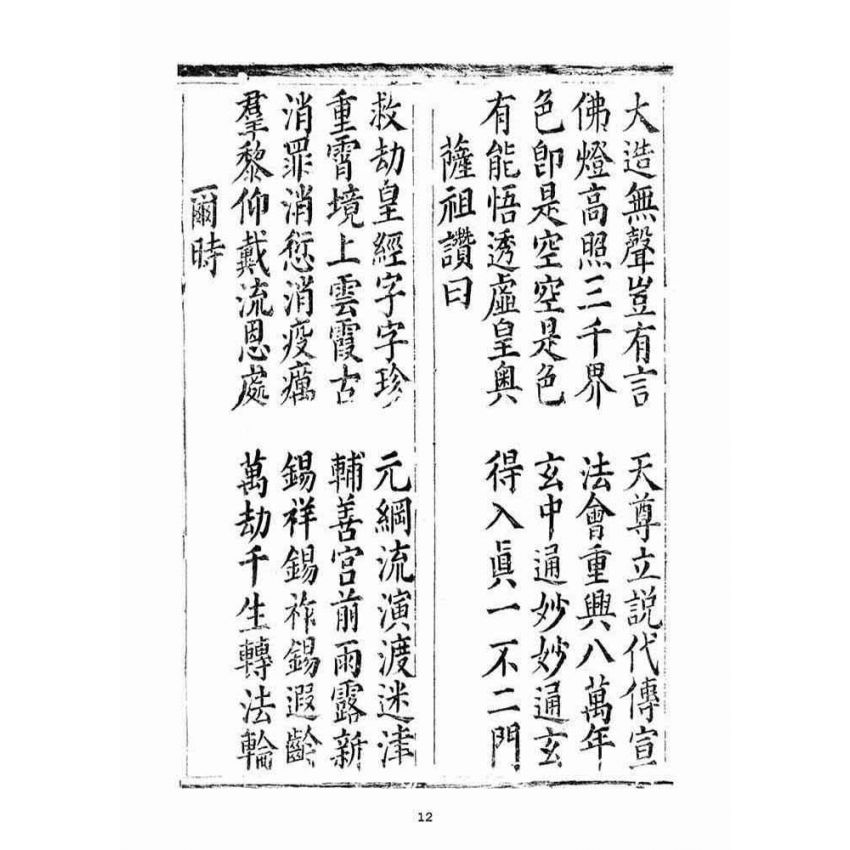 大造無聲豈有言　天尊立説代傳宣
佛燈高照三千界　法會重興八萬年
色卽是空空是色　玄中通妙妙通玄
有能悟透虛皇奥　得入眞一不二門
薩祖讚曰
救劫皇經字字珍　元綱流演渡迷津
重霄境上雲霞古　輔善宮前雨露新
消罪消愆消疫癘　錫祥錫祚錫遐齡
羣黎仰戴流恩處　萬劫千生轉法輪
爾時
12